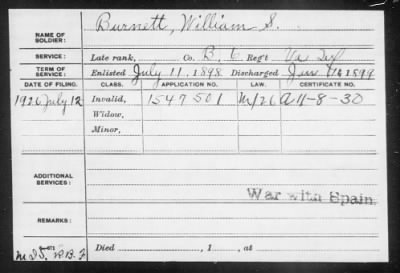 NAME OF SOLDIER: Burnett, William S.
SERVICE: Late rank, Co. B, 6 Reg't Va Inf
TERM OF SERVICE: Enlisted July 11, 1898 Discharged Jan 1899
DATE OF FILING. CLASS. APPLICATION NO. LAW. CERTIFICATE NO.
1926 July 12 Invalid, 1547501 A11-8-30
Widow,
Minor,
ADDITIONAL SERVICES:
War with Spain.
REMARKS:
Died , 1 , at